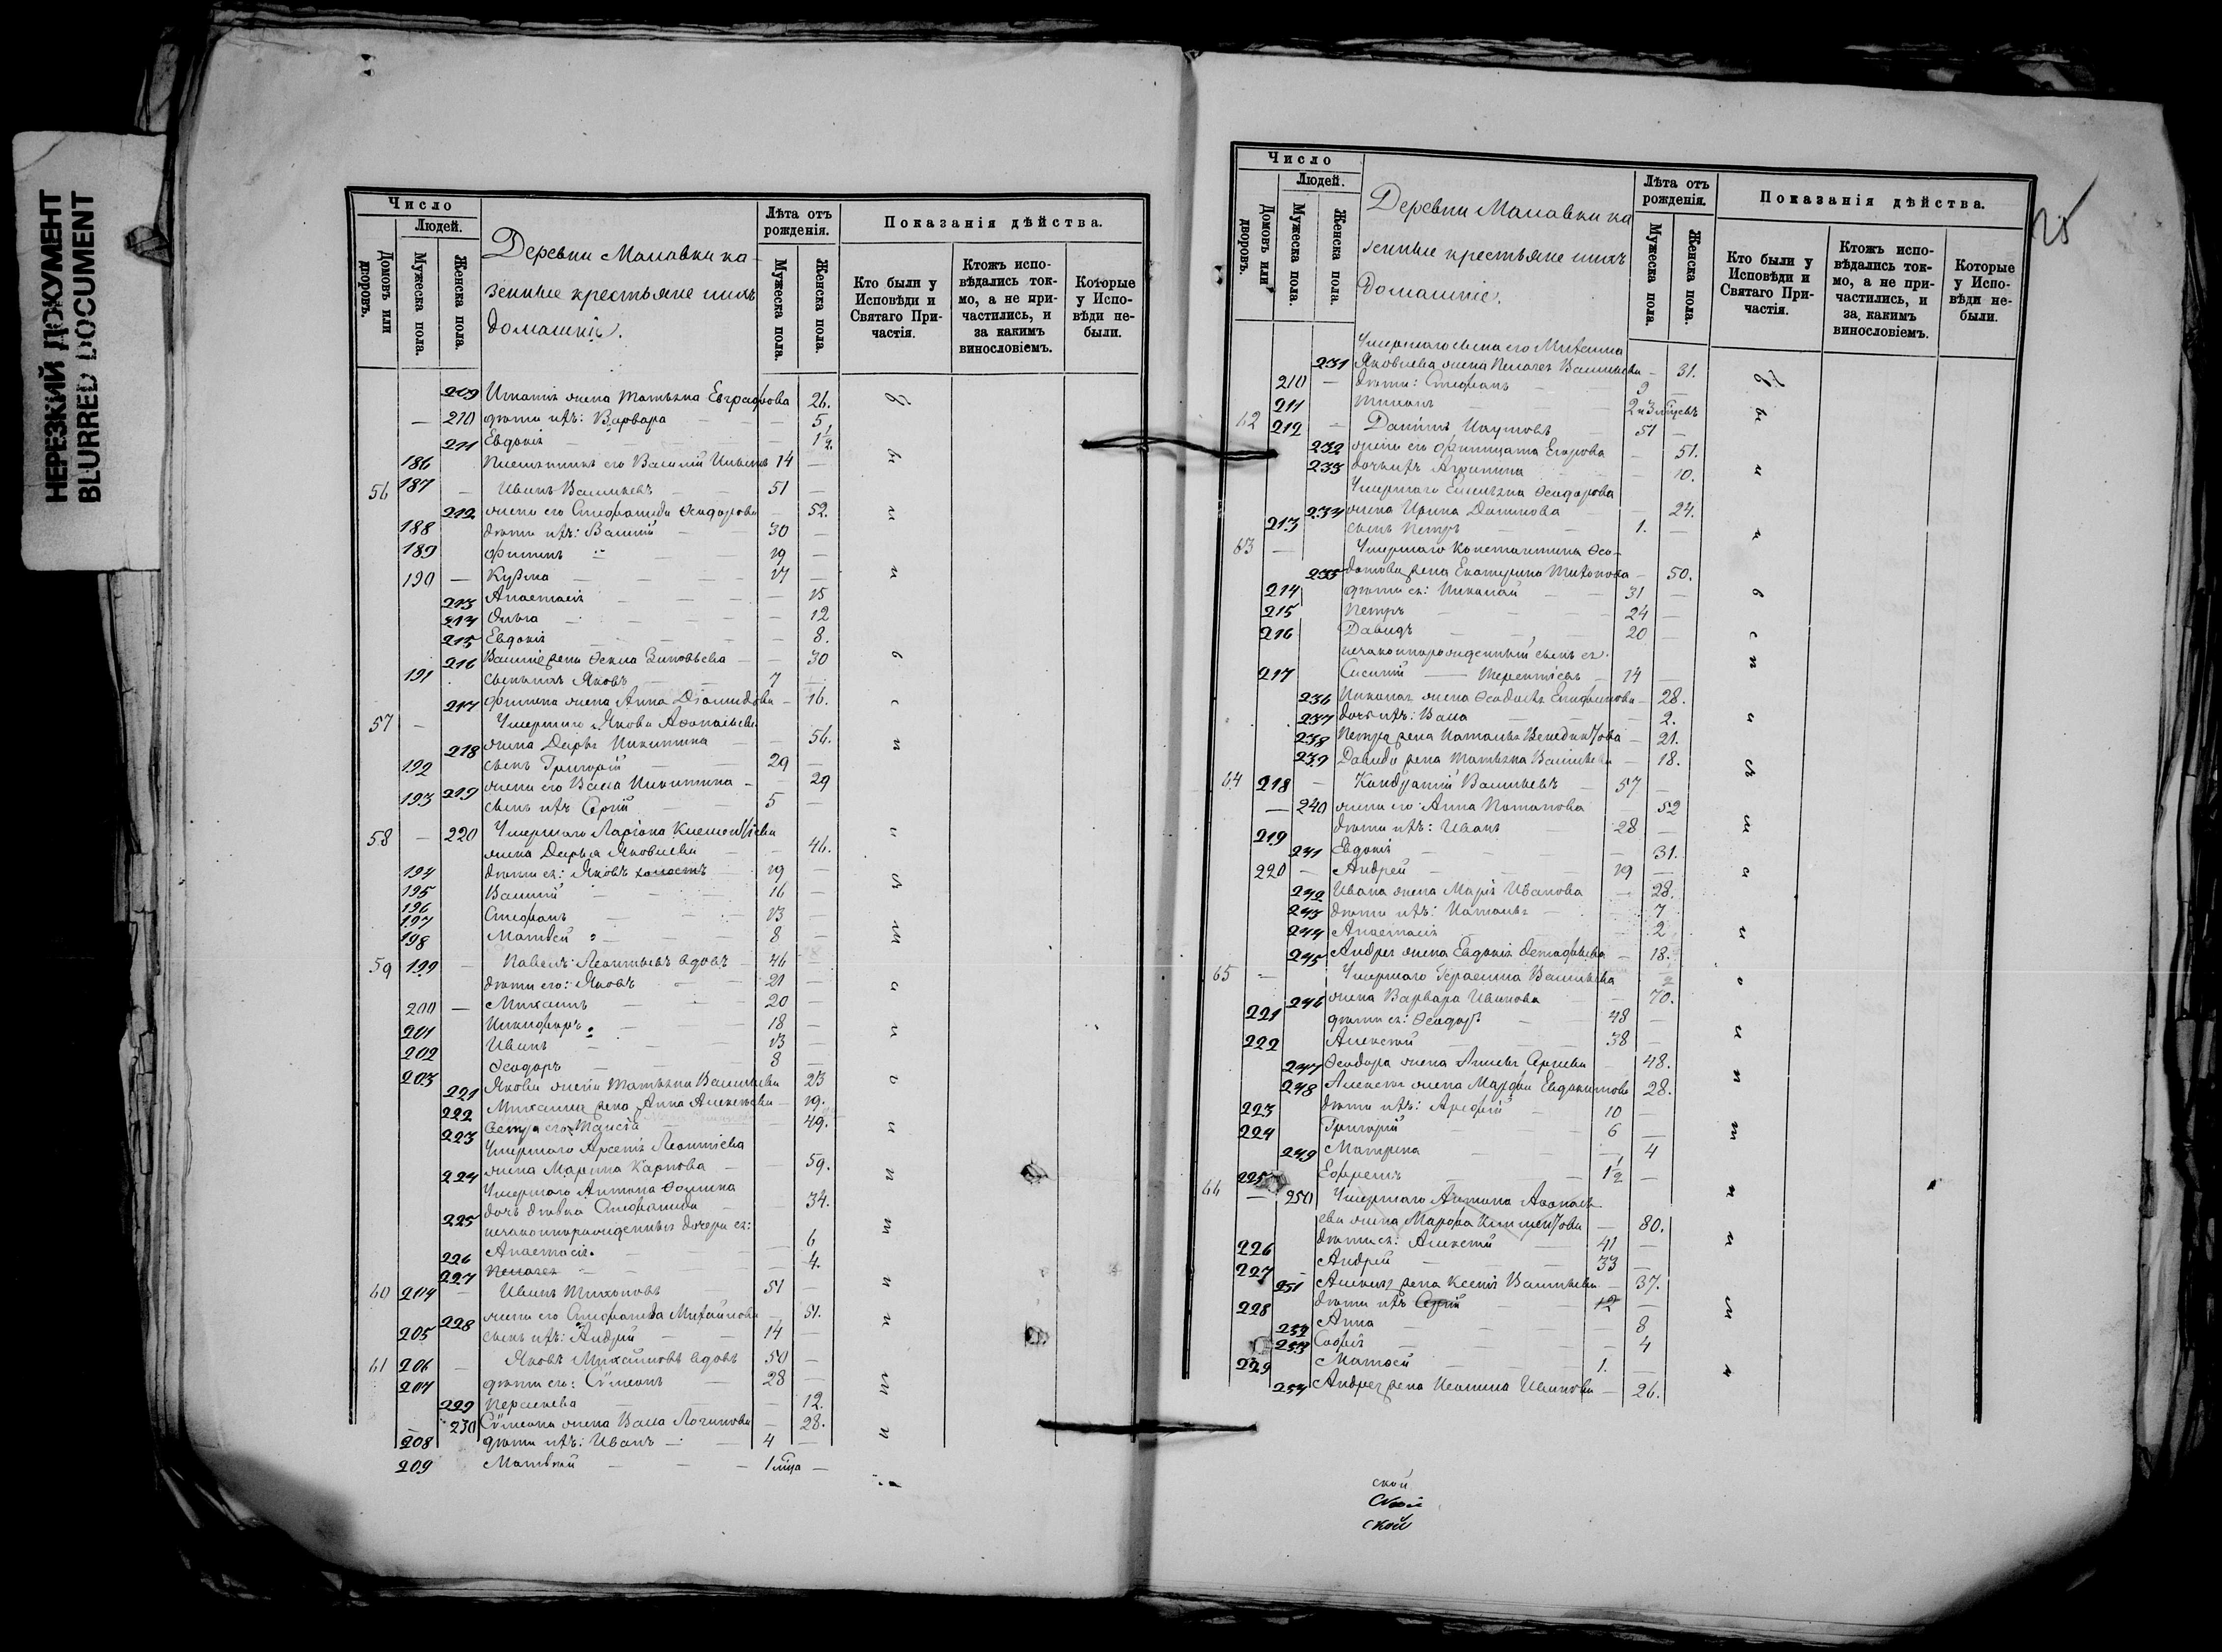 НЕРЕЗКИЙ ДОКУМЕНТ
BLURRED DOCUMENT
Число
Людей.
Домовъ или дворовъ.
Мужеска пола.
Женска пола.
Деревни Малавки ка-
зенные крестьяне ихъ
домашніе.
Лѣта отъ рожденія.
Мужеска пола.
Женска пола.
Показанія дѣйства.
Кто были у Исповѣди и Святаго Причастія.
Ктожъ исповѣдались токмо, а не причастились, и за какимъ винословіемъ.
Которые у Исповѣди небыли.
209 Игнатія жена Татьяна Евграфова 26.
210 дѣти ихъ: Варвара 5
211 Евдокія 1½
186 Племянникъ его Василій 14
56 187 Иванъ Васильевъ 51
212 жена его Стефанида Ѳеодорова 52.
188 дѣти ихъ: Василій 30
189 Филиппъ 19
190 Кузма 17
213 Анастасія 15
214 Ольга 12
215 Евдокія 8.
216 Василія жена Ѳекла Зиновьева 30
191 сынъ ихъ Яковъ 7
217 Филиппа жена Анна Діомидова 16.
57 Умершаго Якова Аѳанасьева
218 жена Дарья Никитина 56.
192 сынъ Григорій 29
219 жена его Васса Никитина 29
193 сынъ ихъ Сергій 5
58 220 Умершаго Ларіона Клементіева
жена Дарья Яковлева 46.
194 дѣти ея: Яковъ холостъ 19
195 Василій 16
196
197 Стефанъ 13
198 Матвей 8
59 199 Павелъ Леонтьевъ вдовъ 46
дѣти его: Яковъ 21
200 Михаилъ 20
201 Никифоръ 18
202 Иванъ 13
203 Ѳеодоръ 8
221 Якова жена Татьяна Васильева 23
222 Михаила жена Анна Алексѣева 19.
223 Сестра его Таисія 49.
Умершаго Арсенія Леонтіева
224 жена Марина Карпова 59.
Умершаго Антона Ѳомина
225 дочь дѣвка Стефанида 34.
незаконнорожденныя дочери ея:
226 Анастасія 6
227 Пелагея 4.
60 204 Иванъ Тихоновъ 51
228 жена его Стефанида Михайлова 51.
205 сынъ ихъ: Андрей 14
61 206 Яковъ Михайловъ вдовъ 50
207 дѣти его: Сѵмеонъ 28
229 Параскева 12.
230 Сѵмеона жена Васса Логинова 28.
208 дѣти ихъ: Иванъ 4
209 Матвей 1 мѣца
были у исповѣди и св. причастія
25
Число
Людей.
Домовъ или дворовъ.
Мужеска пола.
Женска пола.
Деревни Малавки ка
зенные крестьяне ихъ
домашніе.
Лѣта отъ рожденія.
Мужеска пола.
Женска пола.
Показанія дѣйства.
Кто были у Исповѣди и Святаго Причастія.
Ктожъ исповѣдались токмо, а не причастились, и за какимъ винословіемъ.
Которые у Исповѣди небыли.
Умершаго сына его Михаила
231 Яковлева жена Пелагея Васильева 31.
210 дѣти: Стефанъ 9
211
62 212 Даніилъ Наумовъ 51
232 жена его Филицата Егорова 51.
233 дочь ихъ Агрипина 10.
Умершаго Емельяна Ѳеодорова
234 жена Ирина Данилова 24.
213 сынъ Петръ 1.
63 Умершаго Константина Ѳео-
235 дотова жена Екатерина Тихонова 50.
214 дѣти ея: Николай 31
215 Петръ 24
216 Давидъ 20
незаконнорожденный сынъ ея
217 Савелій Терентіевъ 14
236 Николая жена Ѳеодосья Епифанова 28.
237 дочь ихъ: Васса 2.
238 Петра жена Наталья Венедиктова 21.
239 Давида жена Татьяна Васильева 18.
64 218 Кондратій Васильевъ 57
240 жена его Анна Потапова 52
219 дѣти ихъ: Иванъ 28
241 Евдокія 31.
220 Андрей 19
242 Ивана жена Марія Иванова 28.
243 дѣти ихъ: Наталья 7
244 Анастасія 2
245 Андрея жена Евдокія 18.
65 Умершаго Герасима Васильева
246 жена Варвара Иванова 70.
221 дѣти ея: Ѳеодоръ 48
222 Алексѣй 38
247 Ѳеодора жена 48.
248 Алексѣя жена Марѳа Евдокимова 28.
223 дѣти ихъ: Арефій 10
224 Григорій 6
249 Матрена 4
225 Ефремъ 1½
66 250 Умершаго Антона Аѳанась-
ева жена Марѳа Климентова 80.
226 дѣти ея: Алексѣй 41
227 Андрей 33
251 Алексѣя жена Ксенія Васильева 37.
228 дѣти ихъ Сергій 12
252 Анна 8
253 Софія 4
229 Матвей 1.
254 Андрея жена Неонила Иванова 26.
ской
ской
ской